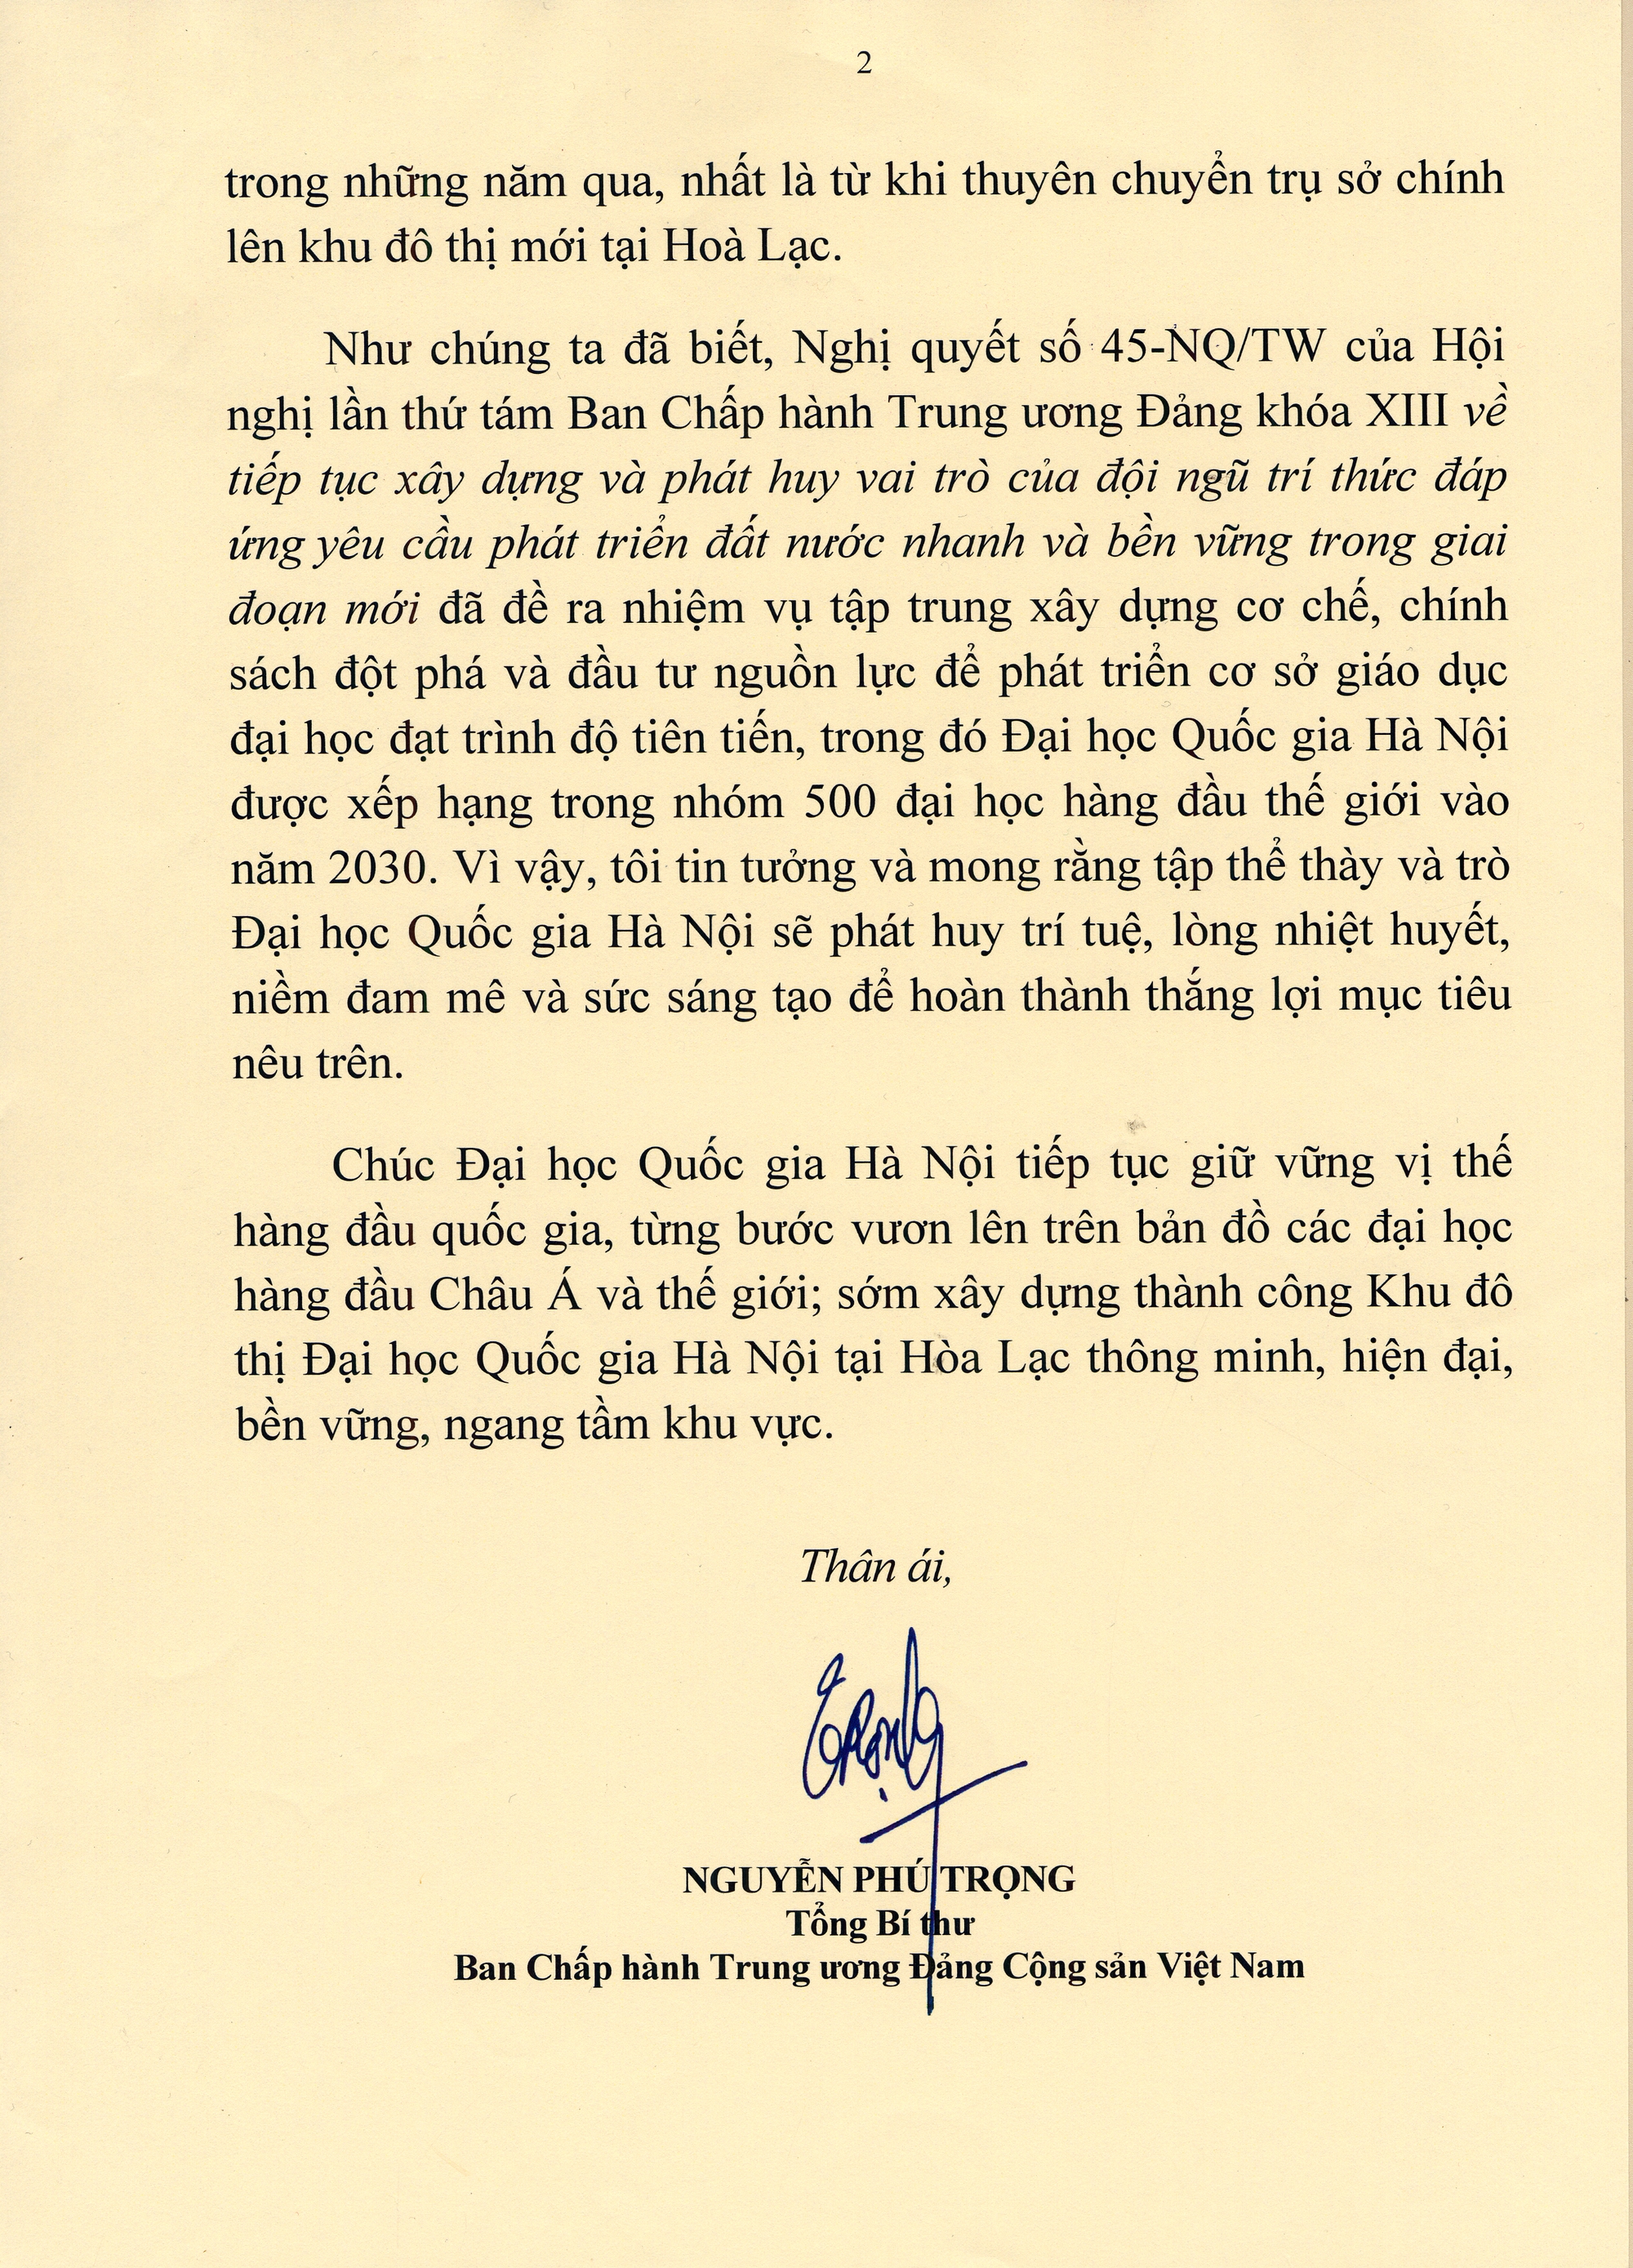 2
trong những năm qua, nhất là từ khi thuyên chuyển trụ sở chính
lên khu đô thị mới tại Hoà Lạc.
Như chúng ta đã biết, Nghị quyết số 45-NQ/TW của Hội
nghị lần thứ tám Ban Chấp hành Trung ương Đảng khóa XIII về
tiếp tục xây dựng và phát huy vai trò của đội ngũ trí thức đáp
ứng yêu cầu phát triển đất nước nhanh và bền vững trong giai
đoạn mới đã đề ra nhiệm vụ tập trung xây dựng cơ chế, chính
sách đột phá và đầu tư nguồn lực để phát triển cơ sở giáo dục
đại học đạt trình độ tiên tiến, trong đó Đại học Quốc gia Hà Nội
được xếp hạng trong nhóm 500 đại học hàng đầu thế giới vào
năm 2030. Vì vậy, tôi tin tưởng và mong rằng tập thể thày và trò
Đại học Quốc gia Hà Nội sẽ phát huy trí tuệ, lòng nhiệt huyết,
niềm đam mê và sức sáng tạo để hoàn thành thắng lợi mục tiêu
nêu trên.
Chúc Đại học Quốc gia Hà Nội tiếp tục giữ vững vị thế
hàng đầu quốc gia, từng bước vươn lên trên bản đồ các đại học
hàng đầu Châu Á và thế giới; sớm xây dựng thành công Khu đô
thị Đại học Quốc gia Hà Nội tại Hòa Lạc thông minh, hiện đại,
bền vững, ngang tầm khu vực.
Thân ái,
Trọng
NGUYỄN PHÚ TRỌNG
Tổng Bí thư
Ban Chấp hành Trung ương Đảng Cộng sản Việt Nam